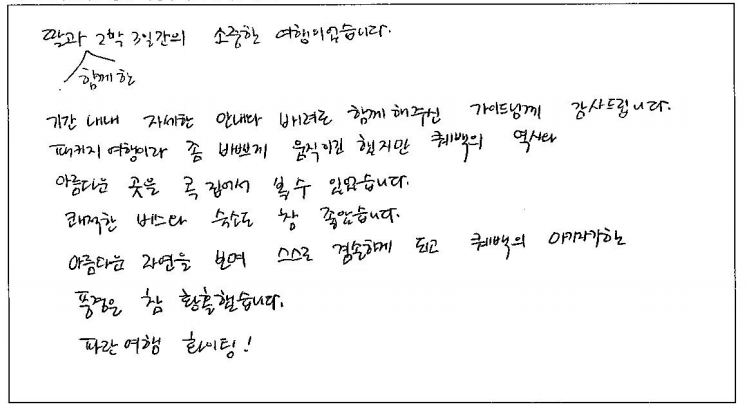 딸과 2박 3일간의 소중한 여행이었습니다.
함께한
기간 내내 자세한 안내와 배려로 함께 해주신 가이드님께 감사드립니다.
패키지 여행이라 좀 바쁘게 움직이긴 했지만 퀘백의 역사와
아름다운 곳을 콕 집어서 볼 수 있었습니다.
쾌적한 버스와 숙소도 참 좋았습니다.
아름다운 자연을 보며 스스로 겸손하게 되고 퀘백의 아기자기한
풍경은 참 황홀했습니다.
파란여행 화이팅!